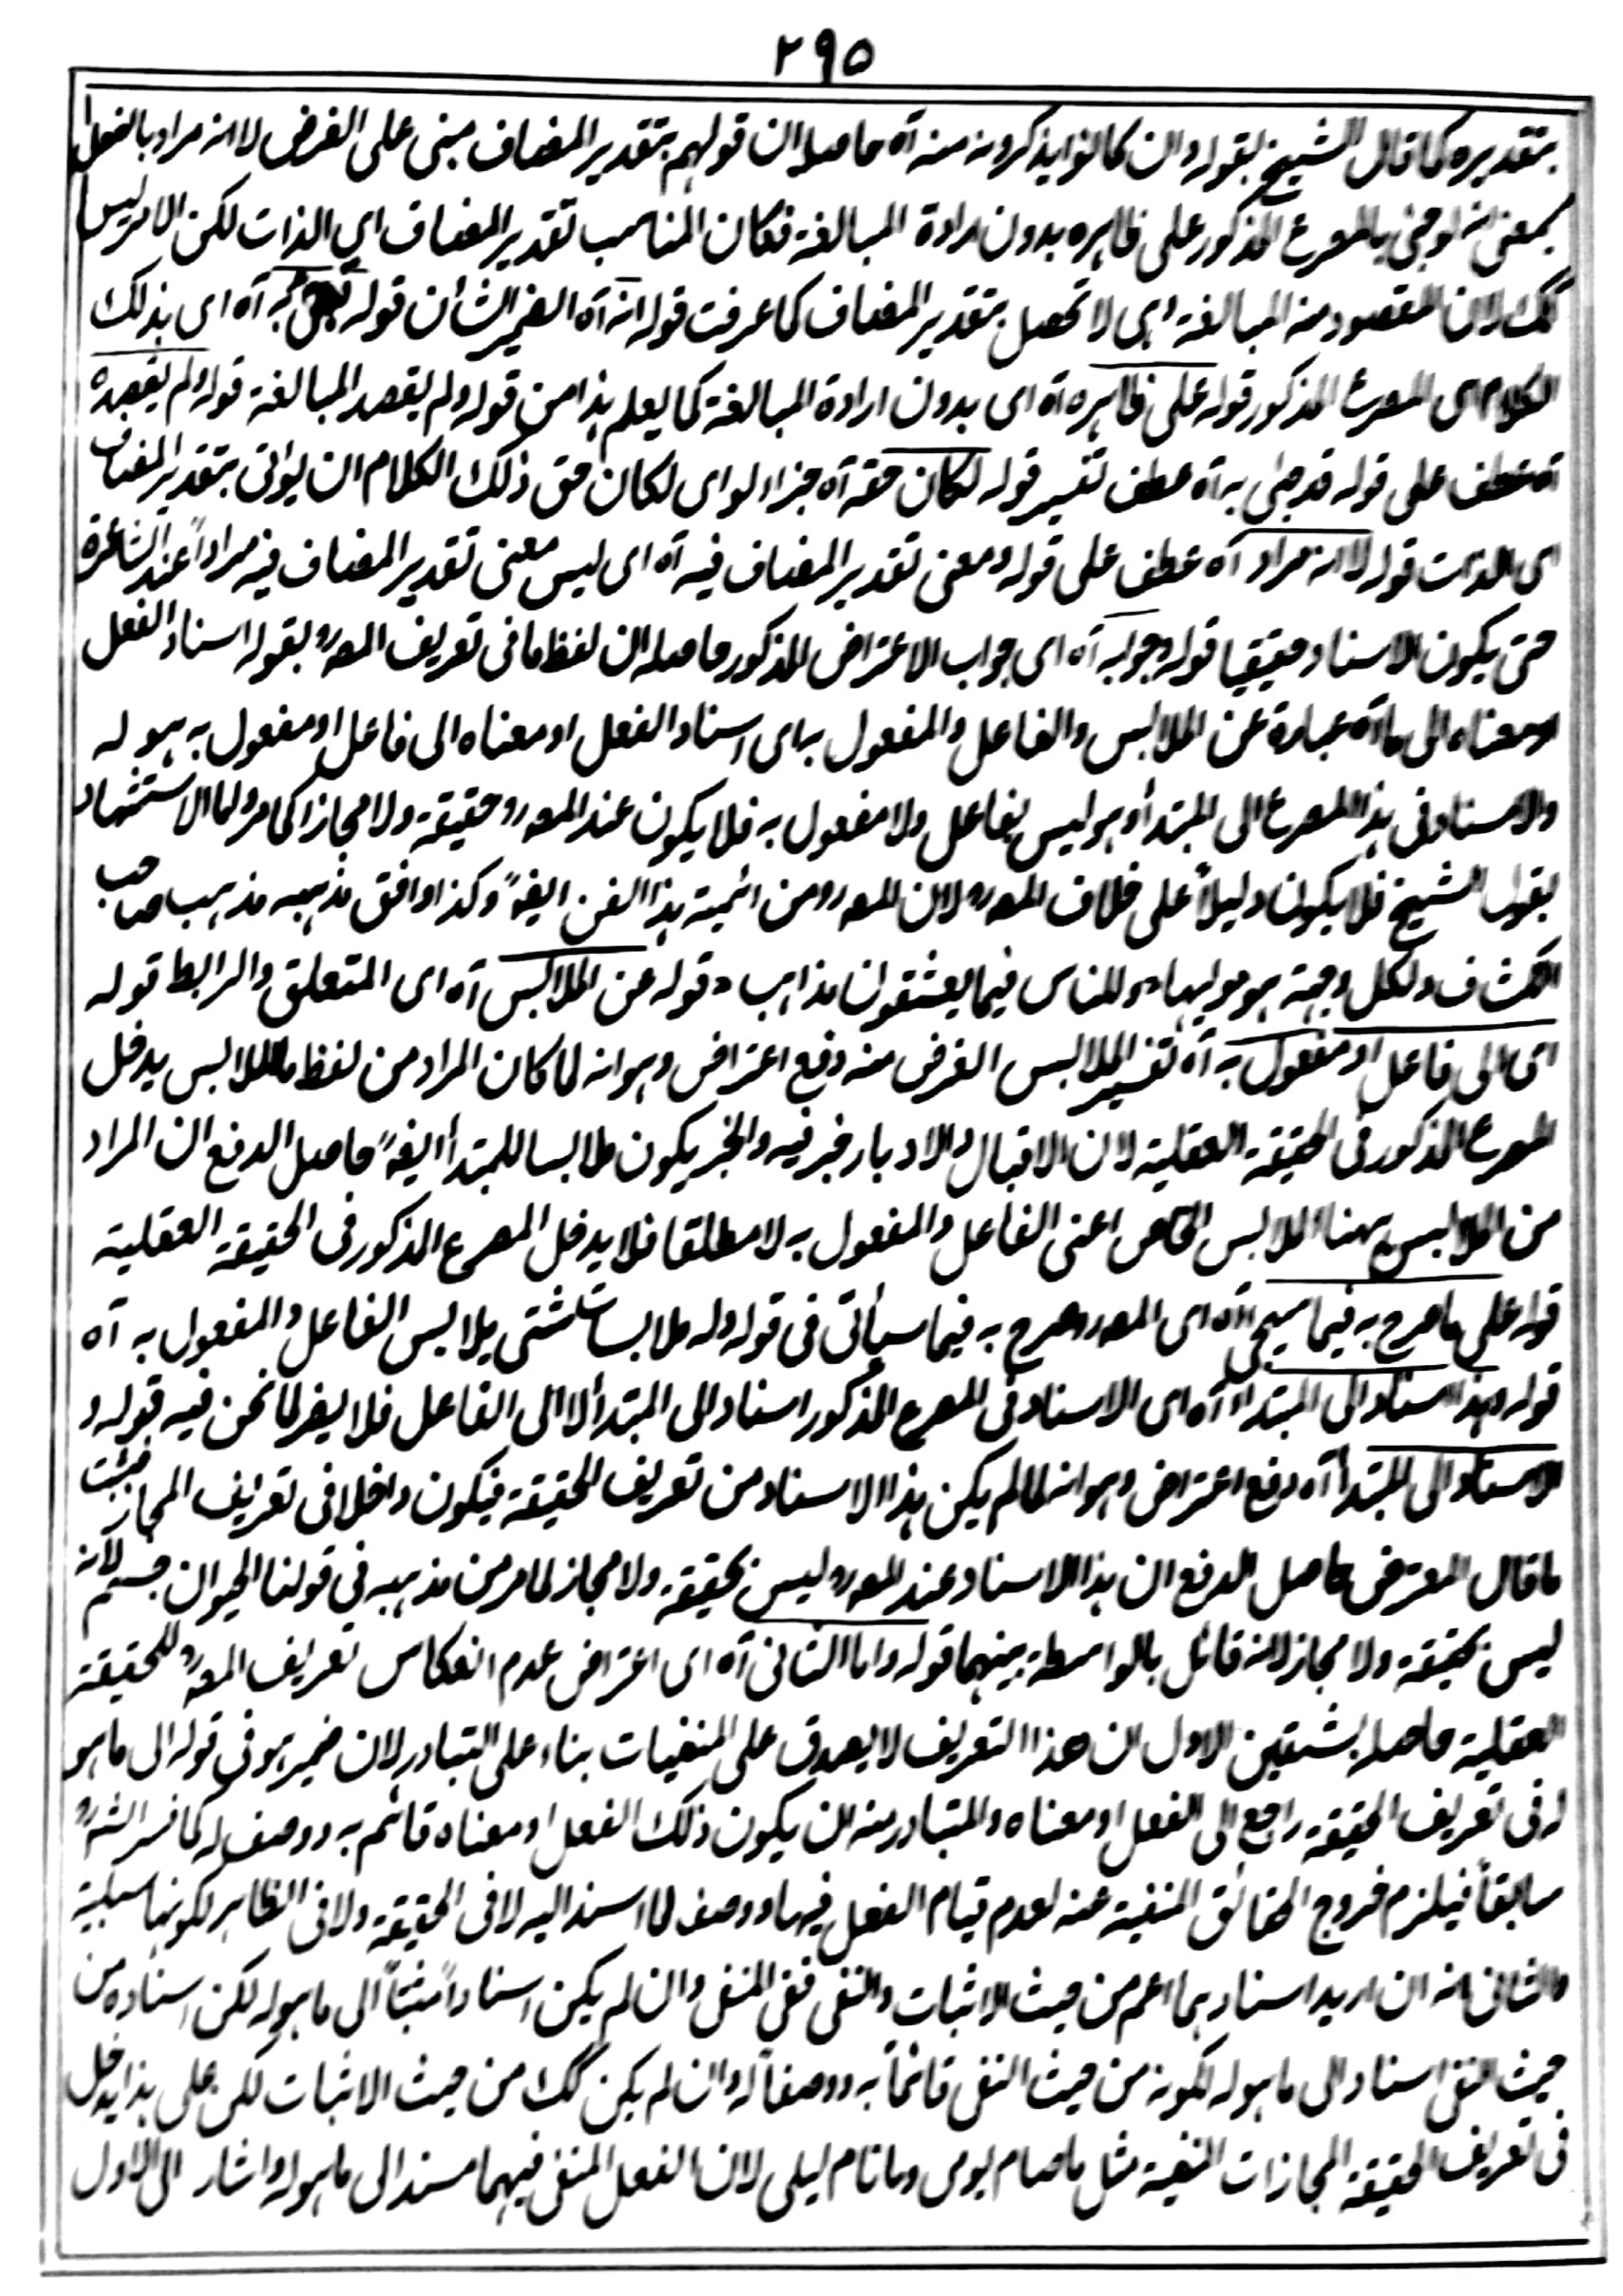 ٢٩٥
بتقديره كما قال الشيخ بقوله وان كانوا يذكرونه منه آه حاصله ان قولهم بتقدير المضاف مبنى على الفرض لا انه مراد بالفعل
بمعنى انه لو جئ بالمصرع المذكور على ظاهره بدون ارادة المبالغة فكان المناسب تقدير المضاف اى الذات لكن الامر ليس
كك لان المقصود منه المبالغة وهى لا تحصل بتقدير المضاف كما عرفت قوله انه آه الضمير الشأن قوله به آه اى بذلك
الكلام اى المصرع المذكور قوله على ظاهره آه اى بدون ارادة المبالغة كما يعلم هذا من قوله ولم يقصد المبالغة قوله ولم يقصده
آه عطف على قوله قد جئ به آه عطف تفسير قوله لكان حقه آه جزاء لو اى لكان حق ذلك الكلام ان يؤتى بتقدير المضاف
اى الذات قوله لا انه مراد آه عطف على قوله ومعنى تقدير المضاف فيه آه اى ليس معنى تقدير المضاف فيه مراداً عند الشاعرة
حتى يكون الاسناد حقيقيا قوله وجوابه آه اى جواب الاعتراض المذكور حاصله ان لفظ ما فى تعريف المصرح بقوله اسناد الفعل
او معناه الى ما آه عبارة عن الملابس والفاعل والمفعول به اى اسناد الفعل او معناه الى فاعل او مفعول به هو له
والاسناد فى هذا المصرع الى المبتدأ وهو ليس بفاعل ولا مفعول به فلا يكون عند المصرح حقيقة ولا مجازا كما مر واما الاستشهاد
بقول الشيخ فلا يكون دليلاً على خلاف المصرح لان المصرح من ائمية هذا الفن ايضاً وكذا وافق مذهبه مذهب صاحب
الكشاف ولكل وجهة هو موليها ع وللناس فيما يعشقون مذاهب ، قوله عن الملابس آه اى المتعلق والرابط قوله
اى الى فاعل او مفعول به آه تفسير الملابس الغرض منه دفع اعتراض وهو انه لما كان المراد من لفظ ما الملابس يدخل
المصرع المذكور فى الحقيقة العقلية لان الاقبال والادبار خبر فيه والخبر يكون ملابسا للمبتدأ ايضاً حاصل الدفع ان المراد
من الملابس ههنا الملابس الخاص اعنى الفاعل والمفعول به لا مطلقا فلا يدخل المصرع المذكور فى الحقيقة العقلية
قوله على ما صرح به فيما سيجئ آه اى المصرح صرح به فيما سيأتى فى قوله وله ملابسات شتى يلابس الفاعل والمفعول به آه
قوله وهذا اسناد الى المبتدأ آه اى الاسناد فى المصرع المذكور اسناد الى المبتدأ لا الى الفاعل فلا يضر لما نحن فيه قوله و
الاسناد الى المبتدأ آه دفع اعتراض وهو انه لما لم يكن هذا الاسناد من تعريف الحقيقة فيكون داخلا فى تعريف المجاز فيثبت
ما قال المعترض حاصل الدفع ان هذا الاسناد عند المصرح ليس بحقيقة ولا مجاز لما مر من مذهبه فى قولنا الحيوان جسم لانه
ليس بحقيقة ولا مجاز لانه قائل بالواسطة بينهما قوله واما الثانى آه اى اعتراض عدم انعكاس تعريف المصرح للحقيقة
العقلية حاصله بشقين الاول ان هذا التعريف لا يصدق على المنفيات بناء على التبادر لان ضمير هو فى قوله الى ما هو
له فى تعريف الحقيقة راجع الى الفعل او معناه والمتبادر منه ان يكون ذلك الفعل او معناه قائم به ووصف له كما فسر الشرح
سابقاً فيلزم خروج الحقائق المنفية عنه لعدم قيام الفعل فيها ووصف لما اسند اليه لا فى الحقيقة ولا فى الظاهر لكونها سلبية
والثانى انه ان اريد اسناد بما اعم من حيث الاثبات والنفى ففى المنفى وان لم يكن اسناداً مثبتاً الى ما هو له لكن اسناده من
حيث النفى اسناد الى ما هو له لكونه من حيث النفى قائماً به ووصفاً له وان لم يكن كك من حيث الاثبات لكن على هذا يدخل
فى تعريف الحقيقة المجازات المنفية مثل ما صام يومى وما نام ليلى لان الفعل المنفى فيهما مسند الى ما هو له واشار الى الاول